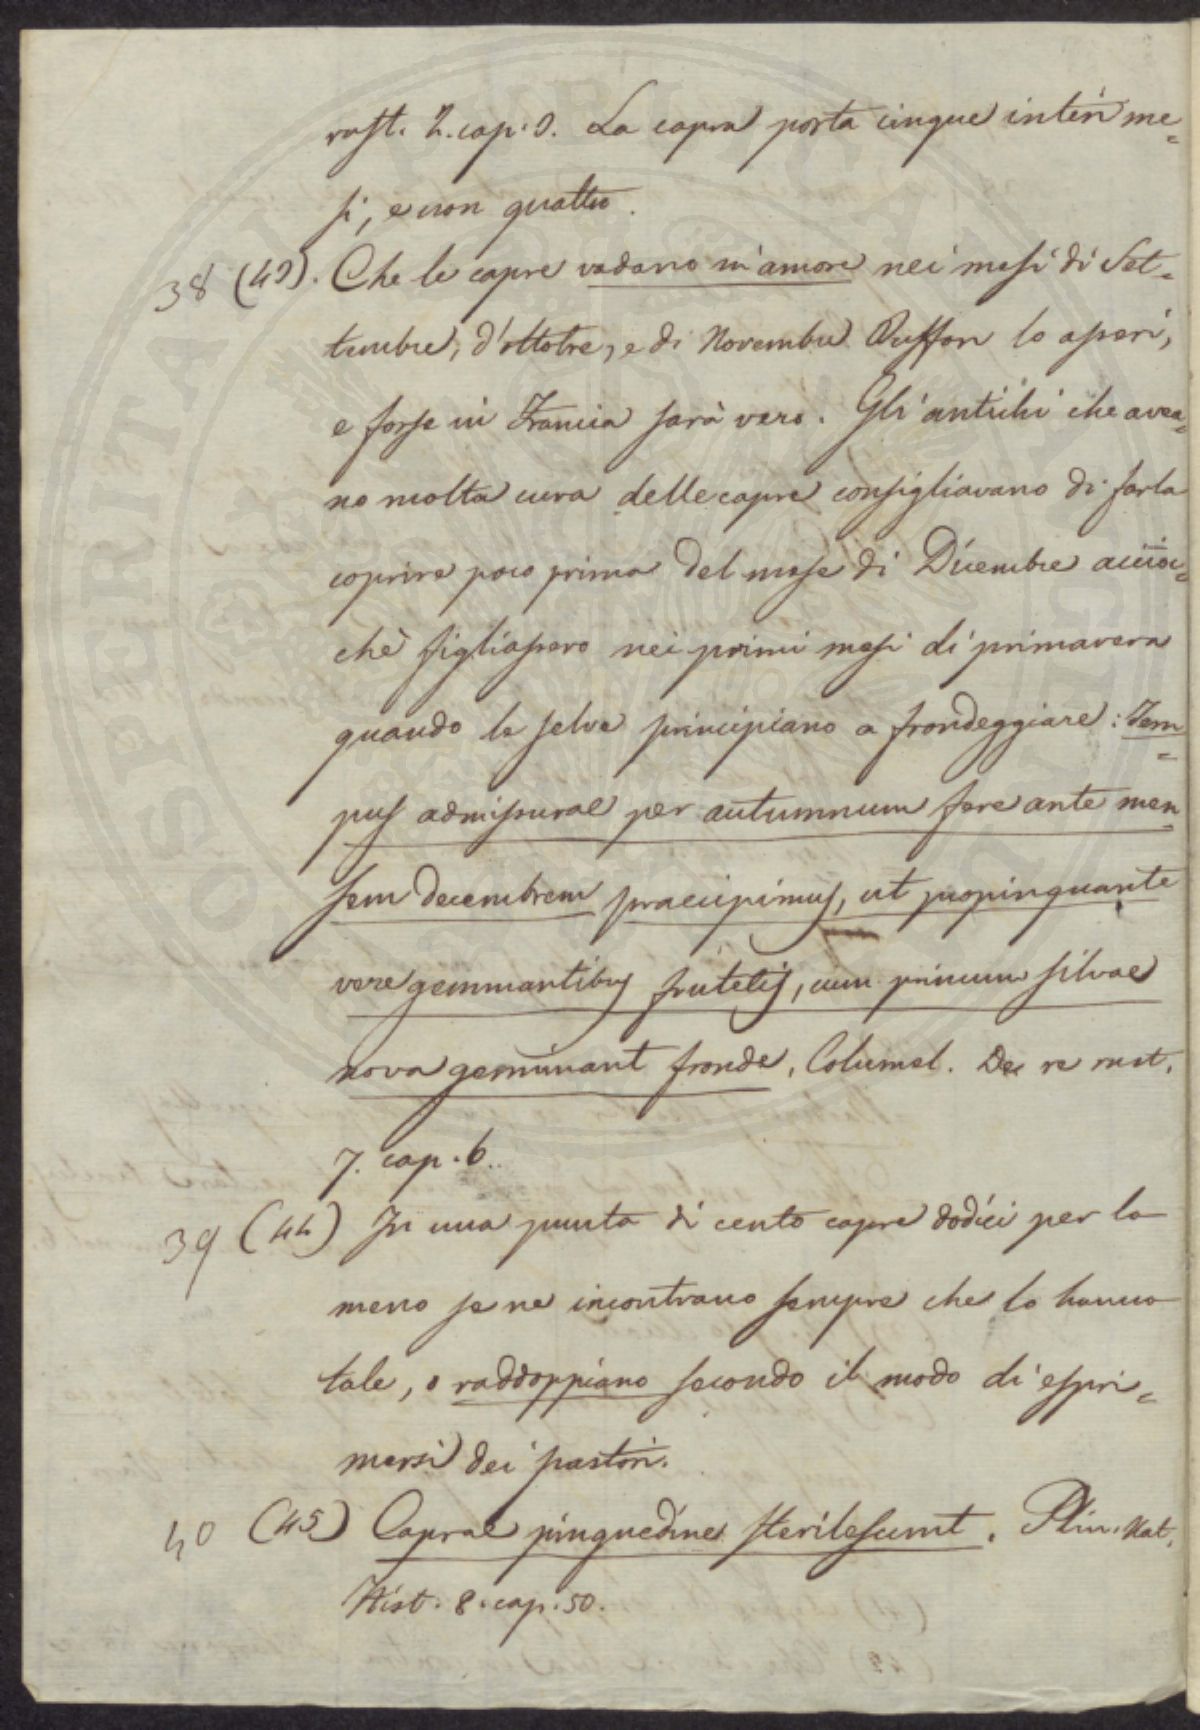 rust. 2. cap. 3. La capra porta cinque interi me=
si, e non quattro.
38 (43). Che le capre vadano in amore nei mesi di Set=
tembre, d'ottobre, e di Novembre Buffon lo asserì,
e forse in Francia sarà vero. Gli antichi che avea=
no molta cura delle capre consigliavano di farle
coprire poco prima del mese di Dicembre accioc=
chè figliassero nei primi mesi di primavera
quando le selve principiano a frondeggiare: Tem=
pus admissurae per autumnum fere ante men
sem decembrem praecipimus, ut propinquante
vere gemmantibus frutetis, cum primum silvae
nova germinant fronde. Columel. De re rust.
7. cap. 6.
39 (44) In una punta di cento capre dodici per lo
meno se ne incontrano sempre che lo hanno
tale, o raddoppiano secondo il modo di espri=
mersi dei pastori.
40 (45) Caprae pinguedine sterilescunt. Plin. Nat.
Hist. 8. cap. 50.